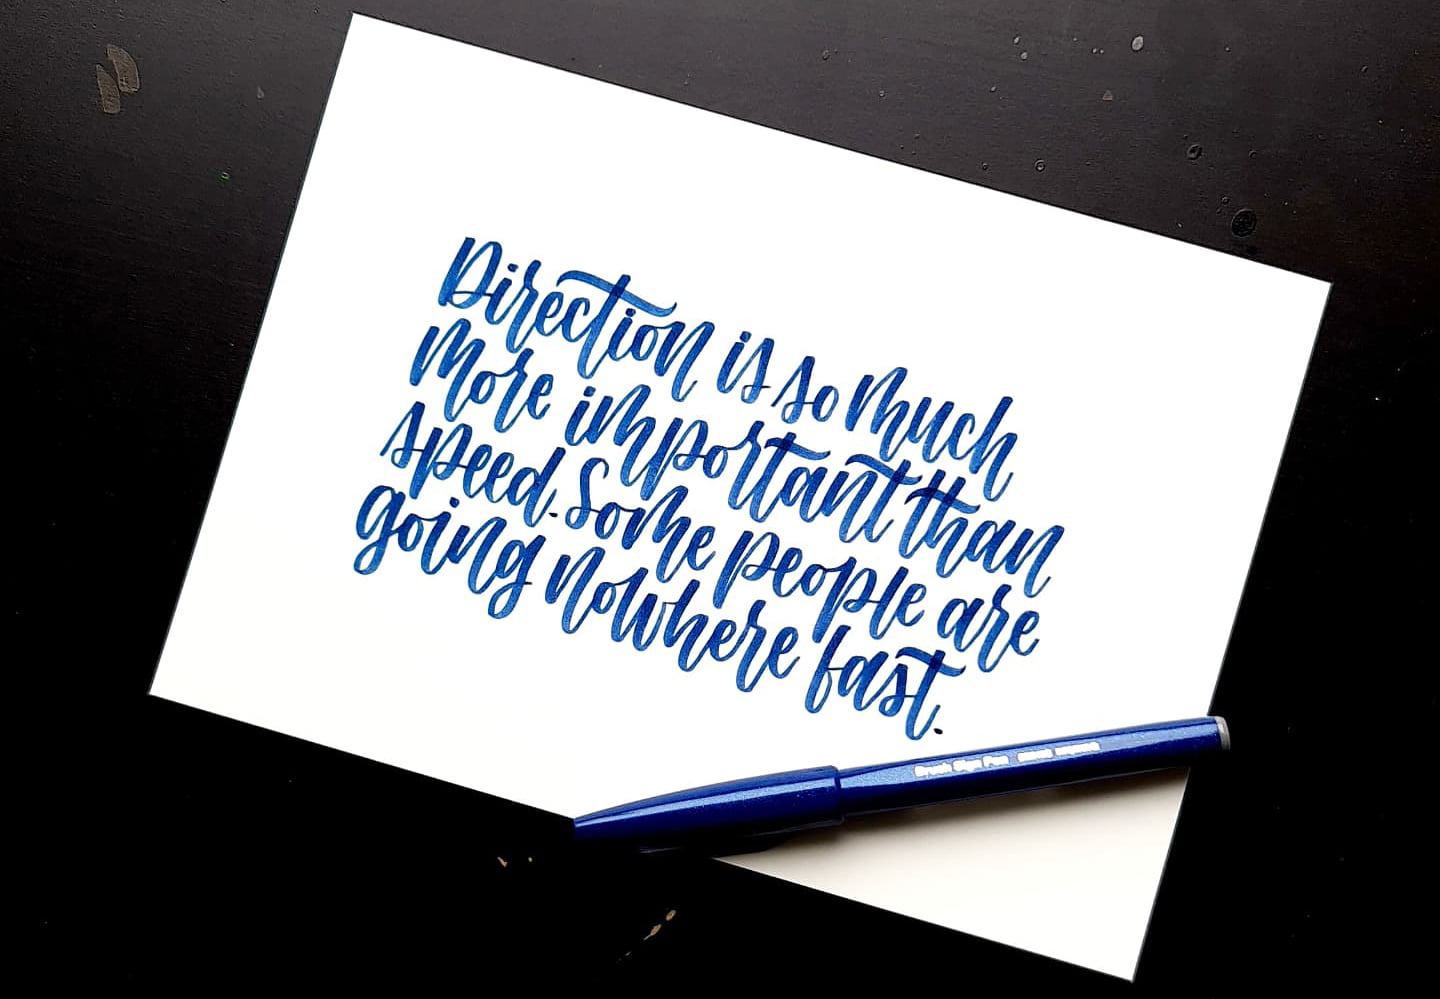 Direction is so much
more important than
speed. Some people are
going nowhere fast.
Brush Sign Pen